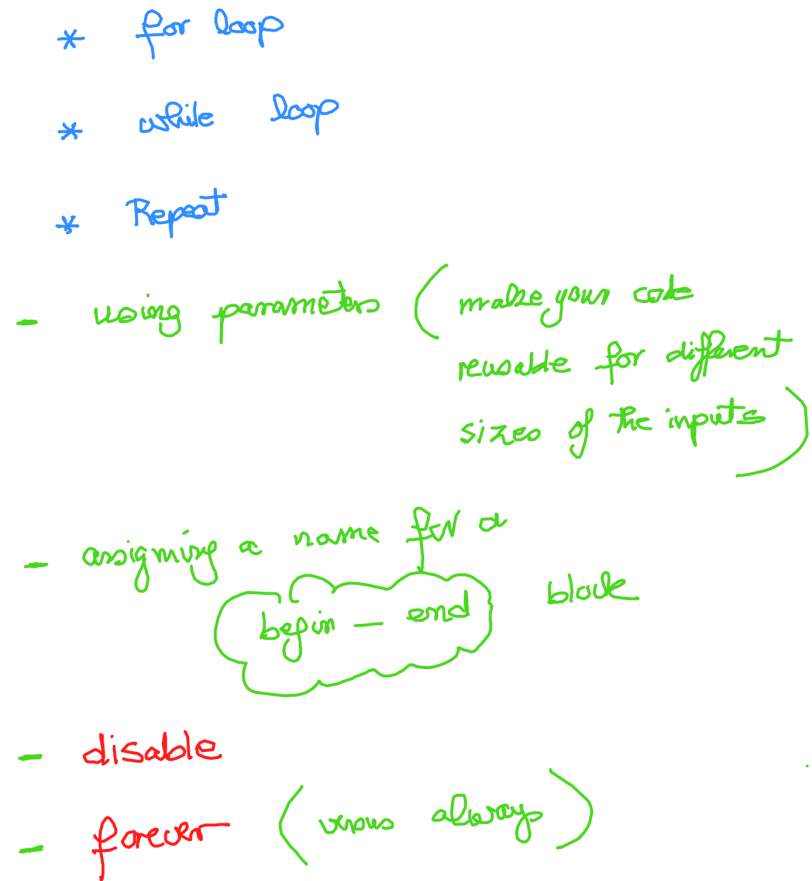 * for loop
* while loop
* Repeat
- using parameters ( make your code
reusable for different
sizes of the inputs )
- assigning a name for a
begin - end block
- disable
- forever ( versus always )